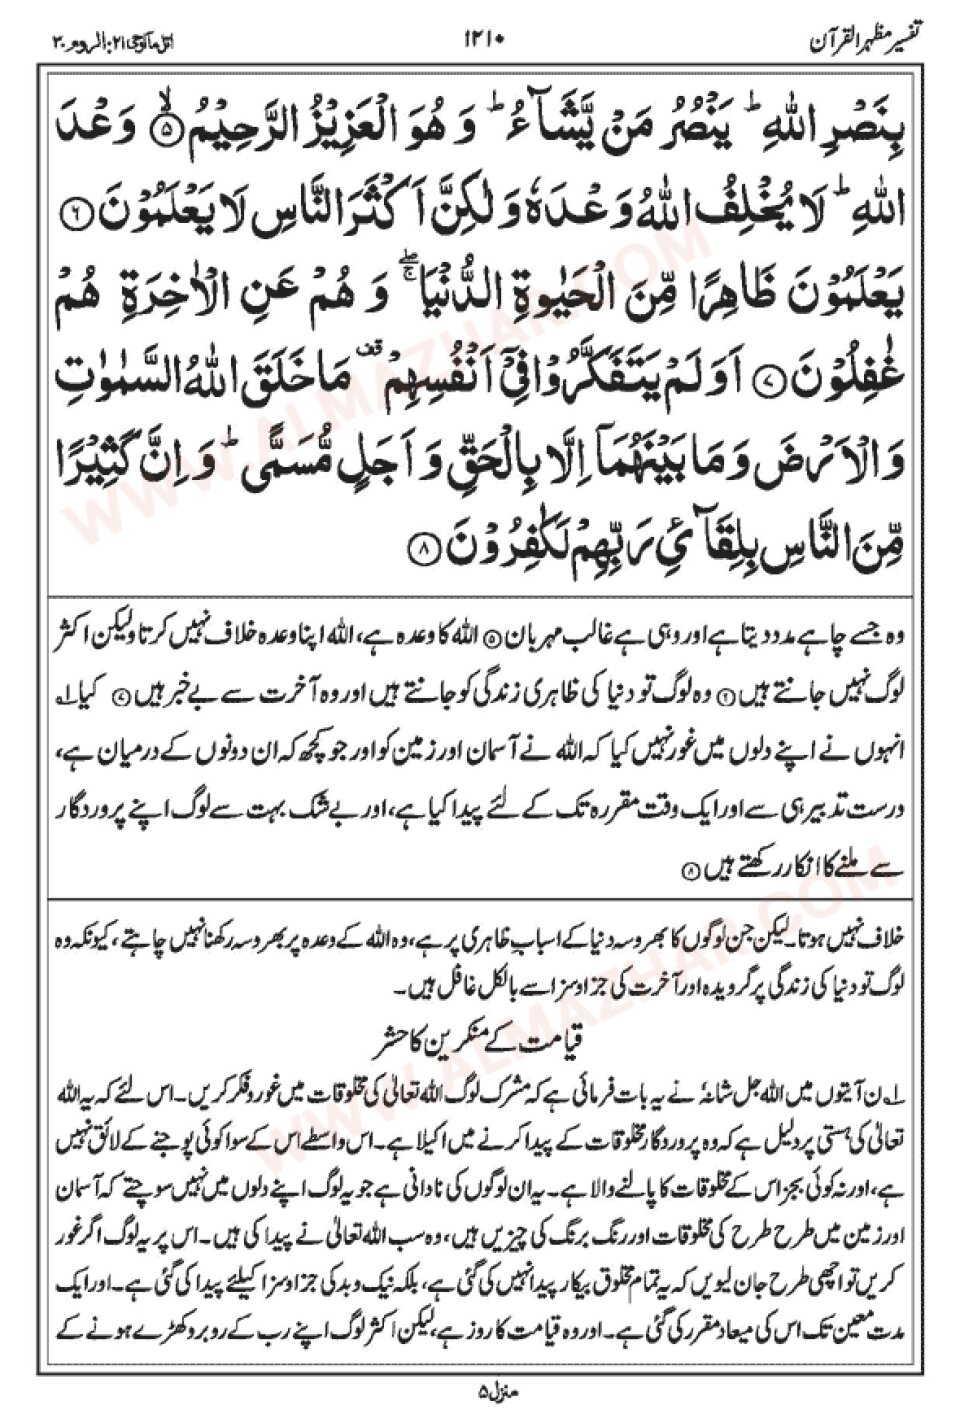 تفسیر مظہر القرآن
۱۲۱۰
اتل ما اوحی ۲۱: الروم ۳۰
بِنَصْرِ اللّٰهِ ؕ یَنْصُرُ مَنْ یَّشَآءُ ؕ وَ هُوَ الْعَزِیْزُ الرَّحِیْمُ ۙ﴿۵﴾ وَعْدَ
اللّٰهِ ؕ لَا یُخْلِفُ اللّٰهُ وَعْدَهٗ وَلٰكِنَّ اَكْثَرَ النَّاسِ لَا یَعْلَمُوْنَ ﴿۶﴾
یَعْلَمُوْنَ ظَاهِرًا مِّنَ الْحَیٰوةِ الدُّنْیَا ۚۖ وَ هُمْ عَنِ الْاٰخِرَةِ هُمْ
غٰفِلُوْنَ ﴿۷﴾ اَوَلَمْ یَتَفَكَّرُوْا فِیْۤ اَنْفُسِهِمْ قف مَا خَلَقَ اللّٰهُ السَّمٰوٰتِ
وَالْاَرْضَ وَمَا بَیْنَهُمَاۤ اِلَّا بِالْحَقِّ وَاَجَلٍ مُّسَمًّی ؕ وَاِنَّ كَثِیْرًا
مِّنَ النَّاسِ بِلِقَآئِ رَبِّهِمْ لَكٰفِرُوْنَ ﴿۸﴾
وہ جسے چاہے مدد دیتا ہے اور وہی ہے غالب مہربان ﴿۵﴾ اللہ کا وعدہ ہے، اللہ اپنا وعدہ خلاف نہیں کرتا ولیکن اکثر
لوگ نہیں جانتے ہیں ﴿۶﴾ وہ لوگ تو دنیا کی ظاہری زندگی کو جانتے ہیں اور وہ آخرت سے بے خبر ہیں ﴿۷﴾ کیا ۱؎
انہوں نے اپنے دلوں میں غور نہیں کیا کہ اللہ نے آسمان اور زمین کو اور جو کچھ کہ ان دونوں کے درمیان ہے،
درست تدبیر ہی سے اور ایک وقت مقررہ تک کے لئے پیدا کیا ہے، اور بے شک بہت سے لوگ اپنے پروردگار
سے ملنے کا انکار رکھتے ہیں ﴿۸﴾
خلاف نہیں ہوتا۔ لیکن جن لوگوں کا بھروسہ دنیا کے اسباب ظاہری پر ہے، وہ اللہ کے وعدہ پر بھروسہ رکھنا نہیں چاہتے، کیونکہ وہ
لوگ تو دنیا کی زندگی پر گرویدہ اور آخرت کی جزا و سزا سے بالکل غافل ہیں۔
قیامت کے منکرین کا حشر
۱؎ ن آیتوں میں اللہ جل شانہٗ نے یہ بات فرمائی ہے کہ مشرک لوگ اللہ تعالیٰ کی مخلوقات میں غور و فکر کریں۔ اس لئے کہ یہ اللہ
تعالیٰ کی ہستی پر دلیل ہے کہ وہ پروردگار مخلوقات کے پیدا کرنے میں اکیلا ہے۔ اس واسطے اس کے سوا کوئی پوجنے کے لائق نہیں
ہے، اور نہ کوئی بجز اس کے مخلوقات کا پالنے والا ہے۔ یہ ان لوگوں کی نادانی ہے جو یہ لوگ اپنے دلوں میں نہیں سوچتے کہ آسمان
اور زمین میں طرح طرح کی مخلوقات اور رنگ برنگ کی چیزیں ہیں، وہ سب اللہ تعالیٰ نے پیدا کی ہیں۔ اس پر یہ لوگ اگر غور
کریں تو اچھی طرح جان لیویں کہ یہ تمام مخلوق بیکار پیدا نہیں کی گئی ہے، بلکہ نیک و بد کی جزا و سزا کیلئے پیدا کی گئی ہے۔ اور ایک
مدت معین تک اس کی میعاد مقرر کی گئی ہے۔ اور وہ قیامت کا روز ہے، لیکن اکثر لوگ اپنے رب کے روبرو کھڑے ہونے کے
منزل ۵
WWW.ALMAZHAR.COM
WWW.ALMAZHAR.COM